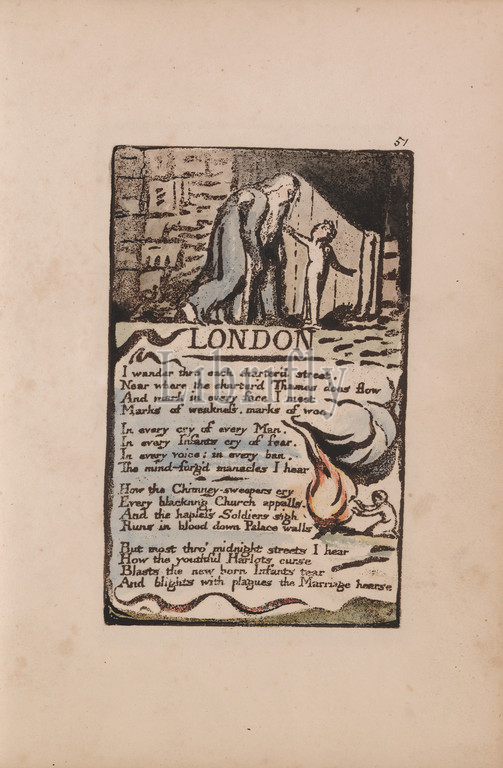 51
LONDON
I wander thro' each charter'd street,
Near where the charter'd Thames does flow
And mark in every face I meet
Marks of weakness, marks of woe
In every cry of every Man.
In every Infants cry of fear.
In every voice; in every ban.
The mind-forg'd manacles I hear
How the Chimney-sweepers cry
Every blackning Church appalls.
And the hapless Soldiers sigh
Runs in blood down Palace walls
But most thro' midnight streets I hear
How the youthful Harlots curse
Blasts the new born Infants tear
And blights with plagues the Marriage hearse